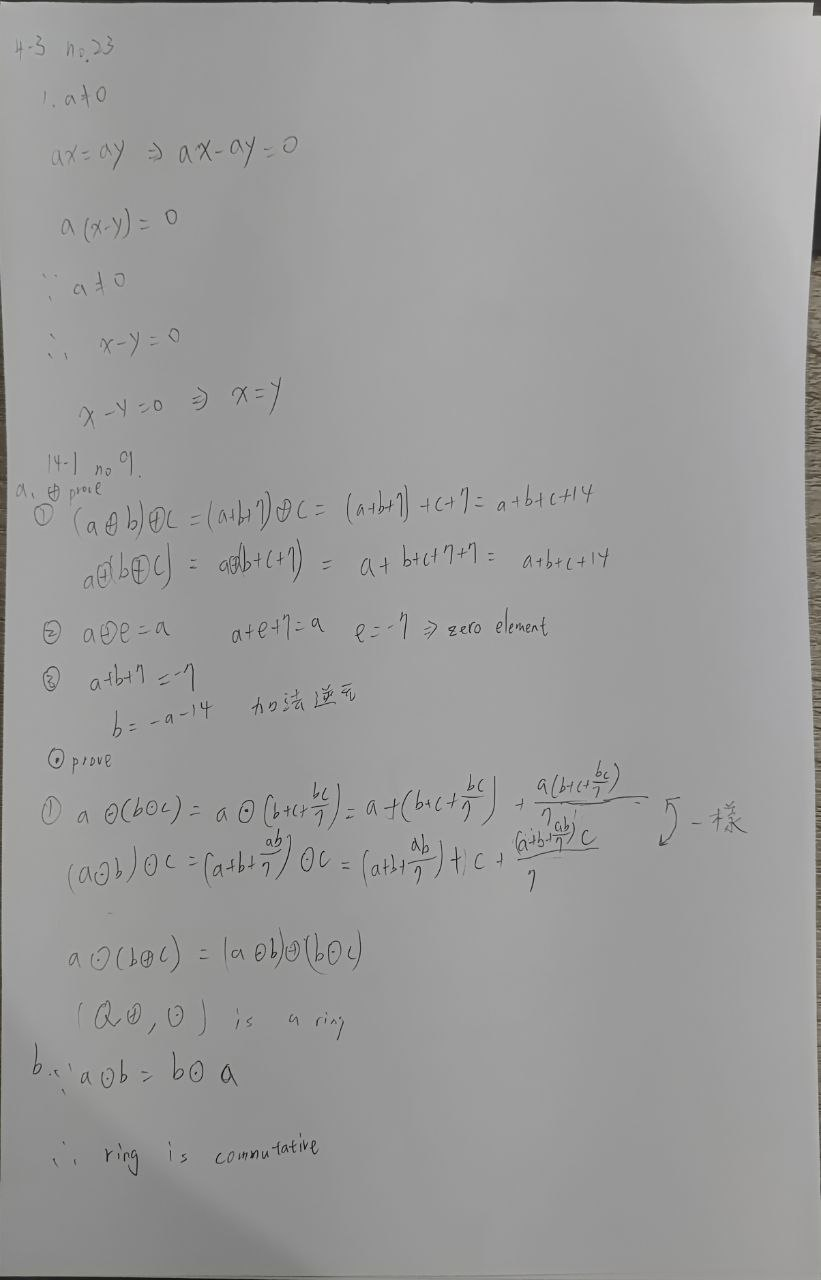 4-3 no.23
1. a≠0
ax=ay ⇒ ax-ay=0
a(x-y)=0
∵ a≠0
∴ x-y=0
x-y=0 ⇒ x=y
14-1 no 9.
a. ⊕ prove
① (a⊕b)⊕c=(a+b+7)⊕c=(a+b+7)+c+7=a+b+c+14
a⊕(b⊕c)=a⊕(b+c+7)=a+b+c+7+7=a+b+c+14
② a⊕e=a a+e+7=a e=-7 ⇒ zero element
③ a+b+7=-7
b=-a-14 加法逆元
⊙ prove
① a⊙(b⊙c)=a⊙(b+c+bc/7)=a+(b+c+bc/7)+a(b+c+bc/7)/7
(a⊙b)⊙c=(a+b+ab/7)⊙c=(a+b+ab/7)+c+(a+b+ab/7)c/7 一樣
a⊙(b⊕c)=(a⊙b)⊕(b⊙c)
(Q⊕,⊙) is a ring
b. ∵ a⊙b=b⊙a
∴ ring is commutative